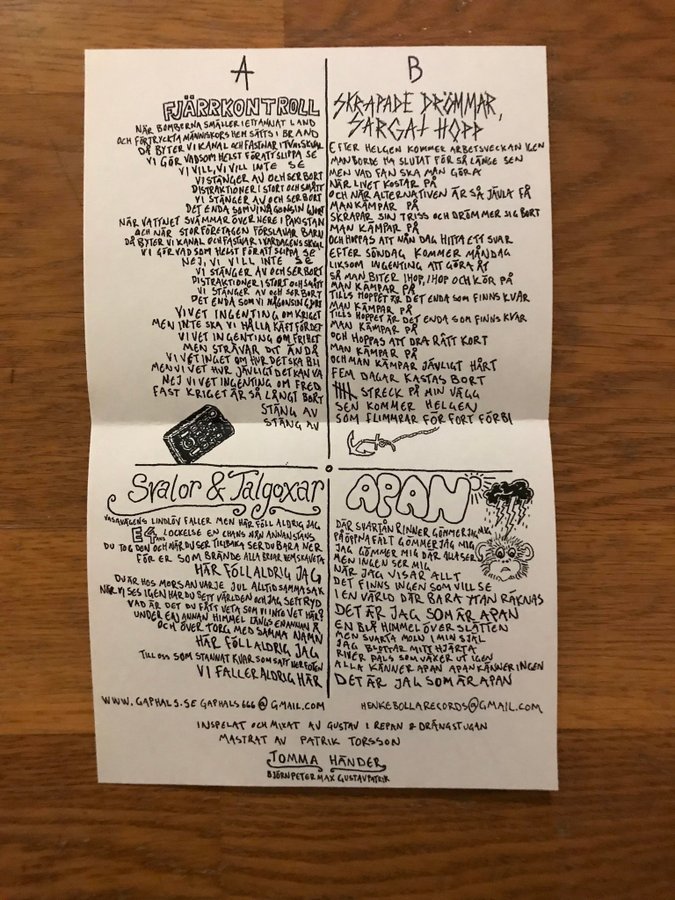 A
FJÄRRKONTROLL
NÄR BOMBERNA SMÄLLER I ETT ANNAT LAND
OCH FÖRTRYCKTA MÄNNISKORS HEM SÄTTS I BRAND
DÅ BYTER VI KANAL OCH FASTNAR I TV:NS SKVAL
VI GÖR VAD SOM HELST FÖR ATT SLIPPA SE
VI VILL, VI VILL INTE SE
VI STÄNGER AV OCH SER BORT
DISTRAKTIONER I STORT OCH SMÅTT
VI STÄNGER AV OCH SER BORT
DET ENDA SOM VI NÅGONSIN GJORT
NÄR VATTNET SVÄMMAR ÖVER HERE I PAKISTAN
OCH NÄR STORFÖRETAGEN FÖRSLAVAR BARN
DÅ BYTER VI KANAL OCH FASTNAR I VARDAGENS SKVAL
VI GÖR VAD SOM HELST FÖR ATT SLIPPA SE
NEJ, VI VILL INTE SE
VI STÄNGER AV OCH SER BORT
DISTRAKTIONER I STORT OCH SMÅTT
VI STÄNGER AV OCH SER BORT
DET ENDA SOM VI NÅGONSIN GJORT
VI VET INGENTING OM KRIGET
MEN INTE SKA VI HÅLLA KÄFT FÖR DET
VI VET INGENTING OM FRIHET
MEN STRÄVAR DIT ÄNDÅ
VI VET INGET OM HUR DET SKA BLI
MEN VI VET HUR JÄVLIGT DET KAN VA
NEJ VI VET INGENTING OM FRED
FAST KRIGET ÄR SÅ LÅNGT BORT
STÄNG AV
STÄNG AV
B
SKRAPADE DRÖMMAR,
SARGAT HOPP
EFTER HELGEN KOMMER ARBETSVECKAN IGEN
MAN BORDE HA SLUTAT FÖR SÅ LÄNGE SEN
MEN VAD FAN SKA MAN GÖRA
NÄR LIVET KOSTAR PÅ
OCH NÄR ALTERNATIVEN ÄR SÅ JÄVLA FÅ
MAN KÄMPAR PÅ
SKRAPAR SIN TRISS OCH DRÖMMER SIG BORT
MAN KÄMPAR PÅ
OCH HOPPAS ATT NÅN DAG HITTA ETT SVAR
EFTER SÖNDAG KOMMER MÅNDAG
LIKSOM INGENTING ATT GÖRA ÅT
SÅ MAN BITER IHOP, IHOP OCH KÖR PÅ
MAN KÄMPAR PÅ
TILLS HOPPET ÄR DET ENDA SOM FINNS KVAR
MAN KÄMPAR PÅ
TILLS HOPPET ÄR DET ENDA SOM FINNS KVAR
MAN KÄMPAR PÅ
OCH HOPPAS ATT DRA RÄTT KORT
MAN KÄMPAR PÅ
OCH MAN KÄMPAR JÄVLIGT HÅRT
FEM DAGAR KASTAS BORT
STRECK PÅ MIN VÄGG
SEN KOMMER HELGEN
SOM FLIMRAR FÖR FORT FÖRBI
Svalor & Talgoxar
VASAVÄGENS LINDLÖV FALLER MEN HÄR FÖLL ALDRIG JAG
E4:ANS LOCKELSE EN CHANS NÅN ANNANSTANS
DU TOG DEN OCH NÄR DU SER TILLBAKA SER DU BARA NER
FÖR ER SOM BRÄNDE ALLA BROAR HEMSKA VETA
HÄR FÖLL ALDRIG JAG
DU ÄR HOS MORSAN VARJE JUL ALLTID SAMMA SAK
NÄR VI SES IGEN HAR DU SETT VÄRLDEN OCH JAG SETT RYD
VAD ÄR DET DU FÅTT VETA SOM VI INTE VET HÄR?
UNDER EN ANNAN HIMMEL LÄNGS EN ANNAN Å
OCH ÖVER TORG MED SAMMA NAMN
HÄR FÖLL ALDRIG JAG
TILL OSS SOM STANNAT KVAR SOM SATT NER FOTEN
VI FALLER ALDRIG HÄR
APAN
DÄR SVARTÅN RINNER GÖMMER JAG MIG
PÅ ÖPPNA FÄLT GÖMMER JAG MIG
JAG GÖMMER MIG DÄR ALLA SER
MEN INGEN SER MIG
NÄR JAG VISAR ALLT
DET FINNS INGEN SOM VILL SE
I EN VÄRLD DÄR BARA YTAN RÄKNAS
DET ÄR JAG SOM ÄR APAN
EN BLÅ HIMMEL ÖVER SLÄTTEN
MEN SVARTA MOLN I MIN SJÄL
JAG BLOTTAR MITT HJÄRTA
RIVER PÄLS SOM VÄXER UT IGEN
ALLA KÄNNER APAN APAN KÄNNER INGEN
DET ÄR JAG SOM ÄR APAN
WWW.GAPHALS.SE GAPHALS666@GMAIL.COM
HENKEBOLLARECORDS@GMAIL.COM
INSPELAT OCH MIXAT AV GUSTAV I REPAN & DRÄNGSTUGAN
MASTRAT AV PATRIK TORSSON
TOMMA HÄNDER
BJÖRN PETER MAX GUSTAV PATRIK